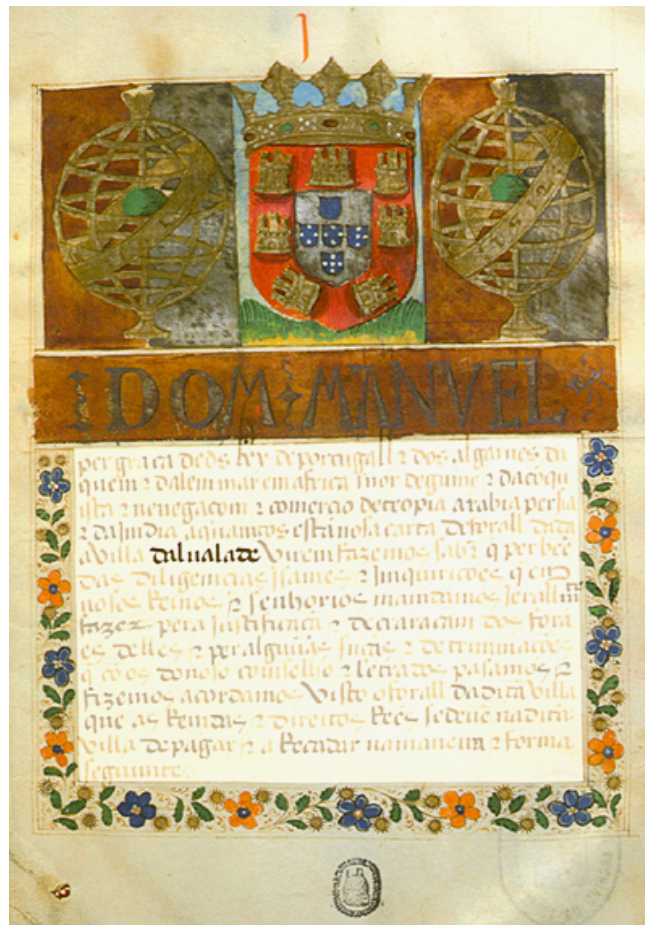 DOM MANVEL
per graça de ds Rey de portugall z dos algarues da
quem z dalem mar em africa sñor de guine z da cõqui
ista z nauegaçom z comercio de teopia arabia persia
z da india a quantos esta nosa carta de forall dada
a villa dalualade virem fazemos sabr q per bẽe
das diligencias Isames z Inquirições q em
nosos Reinos z senhorios mandamos Jerall mte
fazer pera Justificaçã z declaraçam dos fora
es delles z per alguũas z detriminações
q cõ os do noso comselho z letrados pasamos z
fizemos acordamos Visto o forall da dita villa
que as Remdas z direitos Reẽs se deuẽ na dita
villa de pagar z a Recadar na maneira z forma
seguimte.